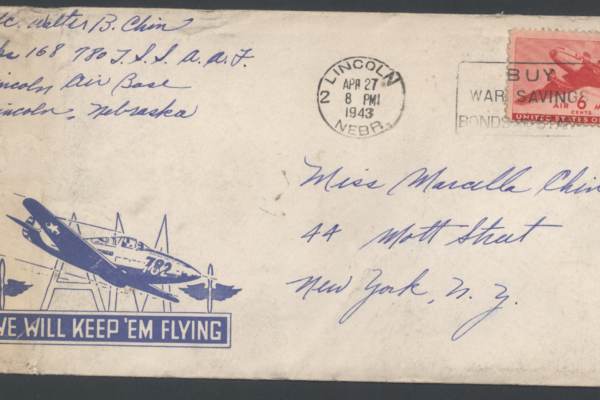 c. Walter B. Chin
ks 168 780 T.S.S. A.A.F.
incoln Air Base
incoln, Nebraska
LINCOLN
2
APR 27
8 PM
1943
NEBR.
BUY
WAR SAVINGS
BONDS
AIR 6 M
CENTS
UNITED STATES O
Miss Marcella Chin
44 Mott Street
New York, N. Y.
782
WE WILL KEEP 'EM FLYING